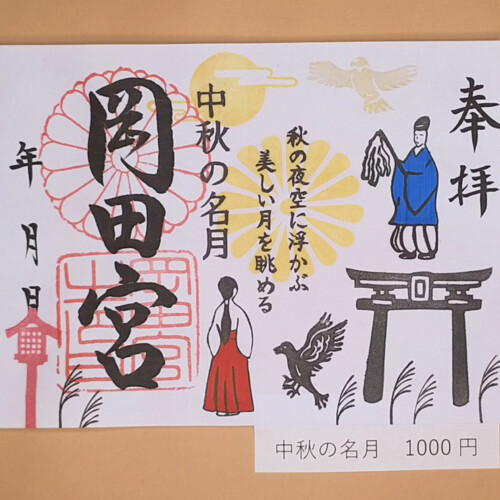 奉拝
秋の夜空に浮かぶ
美しい月を眺める
中秋の名月
岡田宮
年月日
中秋の名月 1000円